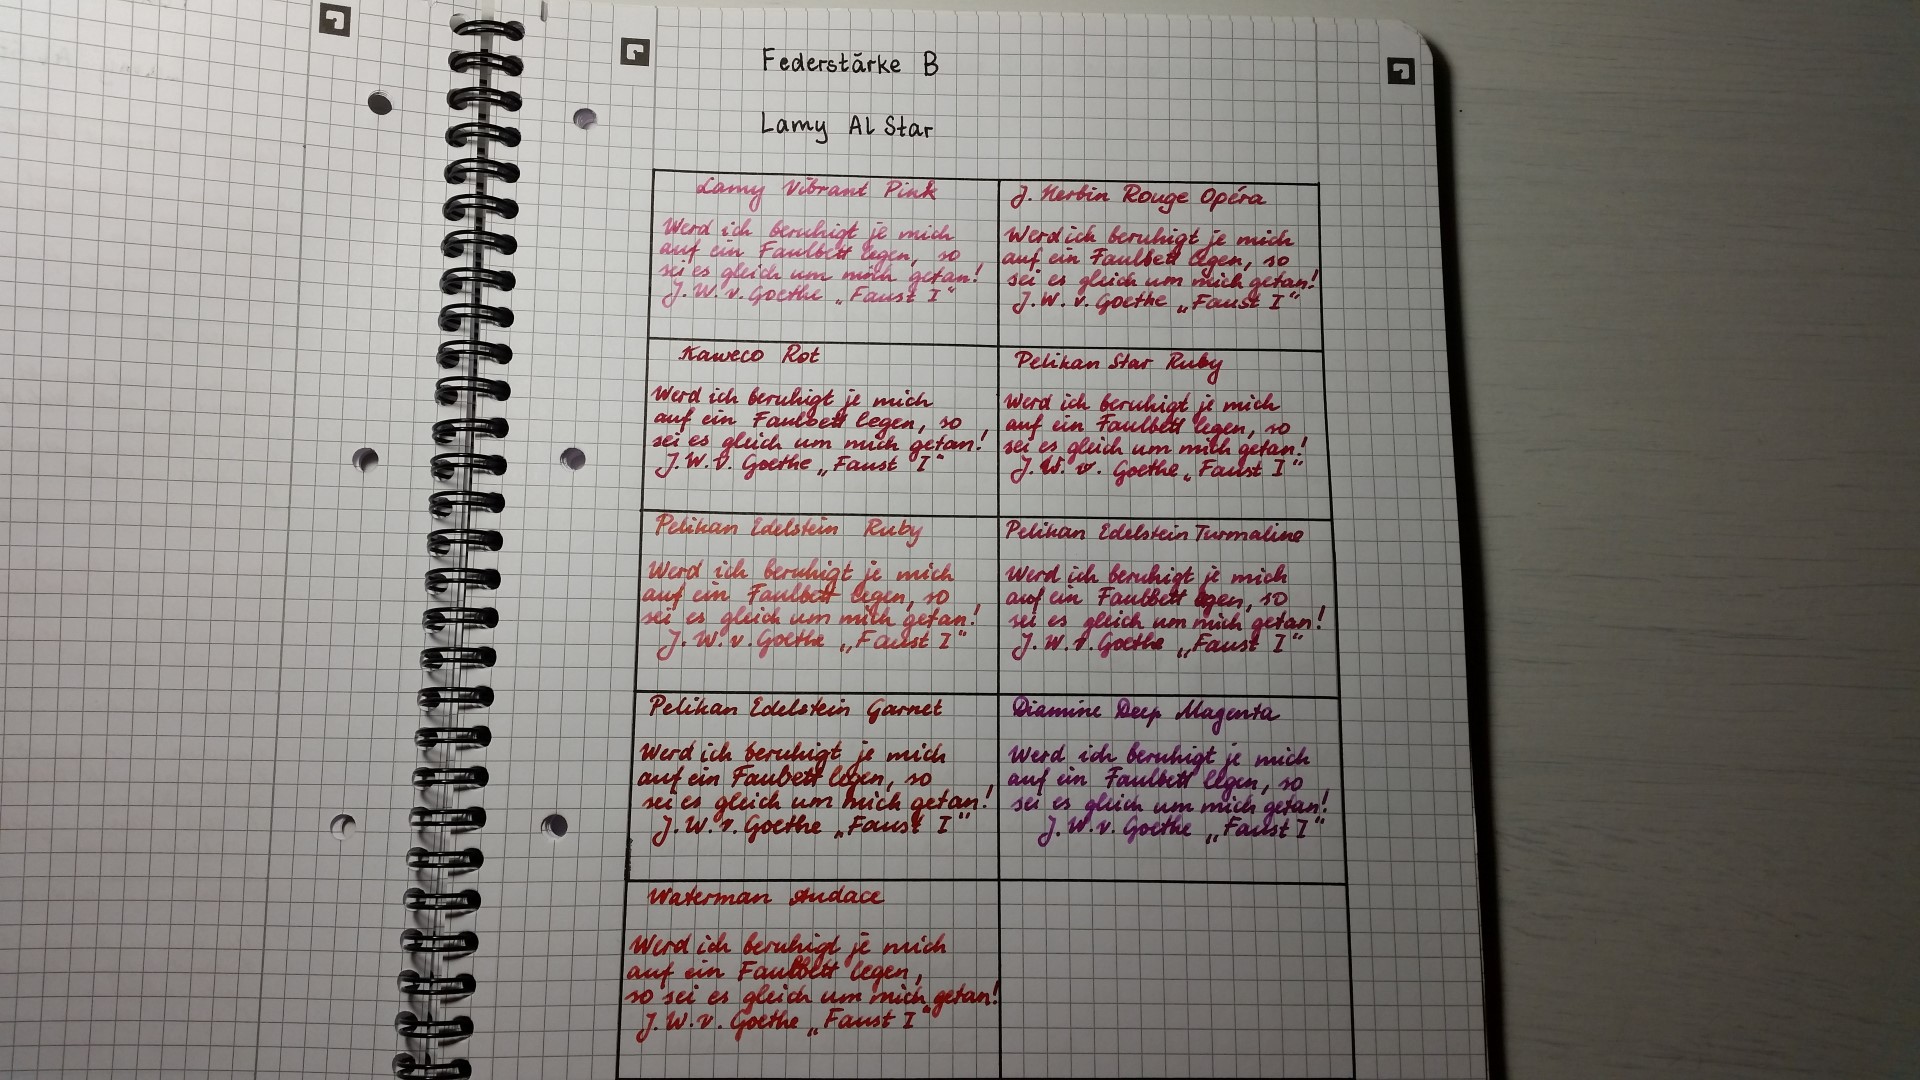 Federstärke B
Lamy Al Star
Lamy Vibrant Pink
Werd ich beruhigt je mich
auf ein Faulbett legen, so
sei es gleich um mich getan!
J. W. v. Goethe „Faust I“
J. Herbin Rouge Opéra
Werd ich beruhigt je mich
auf ein Faulbett legen, so
sei es gleich um mich getan!
J. W. v. Goethe „Faust I“
Kaweco Rot
Werd ich beruhigt je mich
auf ein Faulbett legen, so
sei es gleich um mich getan!
J. W. v. Goethe „Faust I“
Pelikan Star Ruby
Werd ich beruhigt je mich
auf ein Faulbett legen, so
sei es gleich um mich getan!
J. W. v. Goethe „Faust I“
Pelikan Edelstein Ruby
Werd ich beruhigt je mich
auf ein Faulbett legen, so
sei es gleich um mich getan!
J. W. v. Goethe „Faust I“
Pelikan Edelstein Turmaline
Werd ich beruhigt je mich
auf ein Faulbett legen, so
sei es gleich um mich getan!
J. W. v. Goethe „Faust I“
Pelikan Edelstein Garnet
Werd ich beruhigt je mich
auf ein Faubett legen, so
sei es gleich um mich getan!
J. W. v. Goethe „Faust I“
Diamine Deep Magenta
Werd ich beruhigt je mich
auf ein Faulbett legen, so
sei es gleich um mich getan!
J. W. v. Goethe „Faust I“
Waterman Audace
Werd ich beruhigt je mich
auf ein Faulbett legen,
so sei es gleich um mich getan!
J. W. v. Goethe „Faust I“